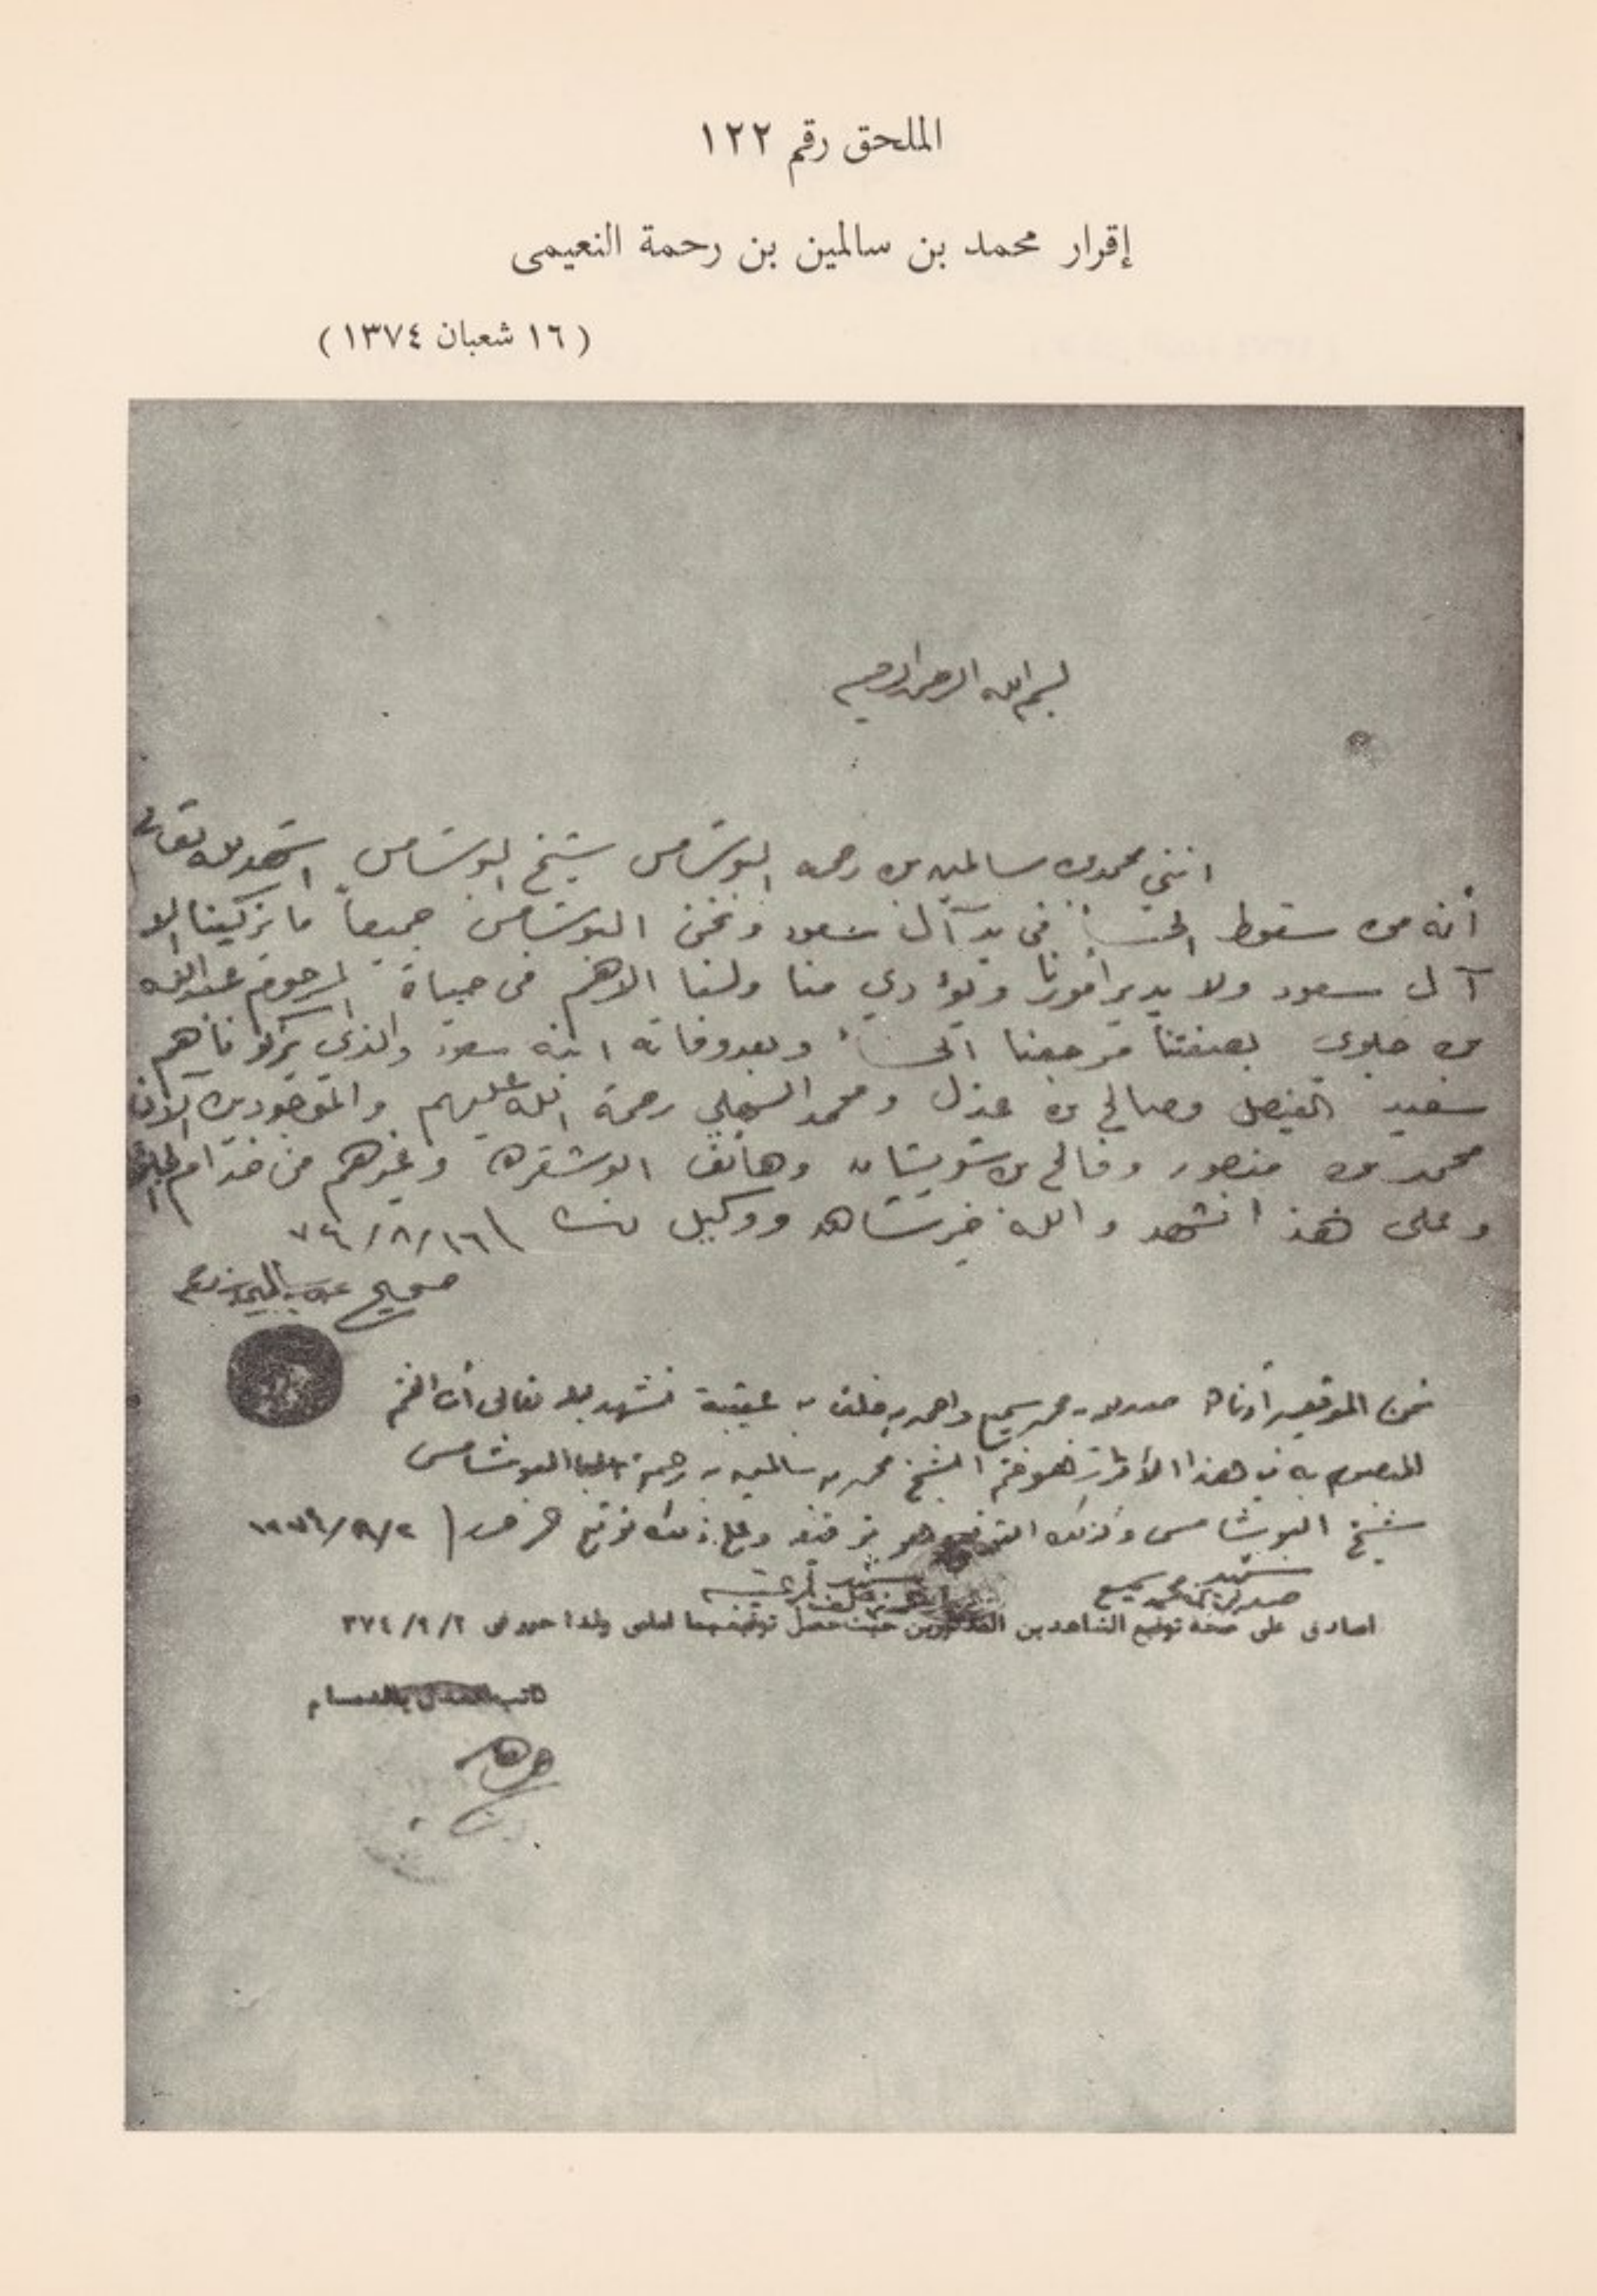 الملحق رقم ١٢٢
إقرار محمد بن سالمين بن رحمة النعيمى
( ١٦ شعبان ١٣٧٤ )
بسم الله الرحمن الرحيم
انني محمد بن سالمين بن رحمه البوشامس شيخ البوشامس اشهد لله تعالى
أنه من سقوط الحسا في يد آل سعود ونحن البوشامس جميعاً ما يزكينا الا
آل سعود ولا يدير أمورنا ويؤدي منا ولنا الا هم في حياة المرحوم عبدالله
بن جلوي بصفتنا مرجعنا الحسا وبعد وفاته ابنه سعود والذي يزكونا هم
سعيد الفيصل وصالح بن عذل ومحمد السهلي رحمة الله عليهم والموجودين الآن
محمد بن منصور وفالح بن شويشان وهاتف ابوشقره وغيرهم من خدام
وعلى هذا نشهد والله خير شاهد ووكيل ١٦/٨/٧٤
صحيح
نحن الموقعين أدناه محمد سميع واحمد بن خلف بن عتيبة نشهد لله تعالى أن الختم
المبصوم به في هذا الأقرار هو ختم الشيخ محمد بن سالمين بن رحمة البوشامس
شيخ البوشامس وكذلك التوقيع هو توقيعه وعلى ذلك نوقع
شهيد
شهيد
اصادق على صحة توقيع الشاهدين المذكورين حيث حصل توقيعهما امامى ولذا حرر فى ٣٧٤/٩/٢
كاتب العدل بالدمام